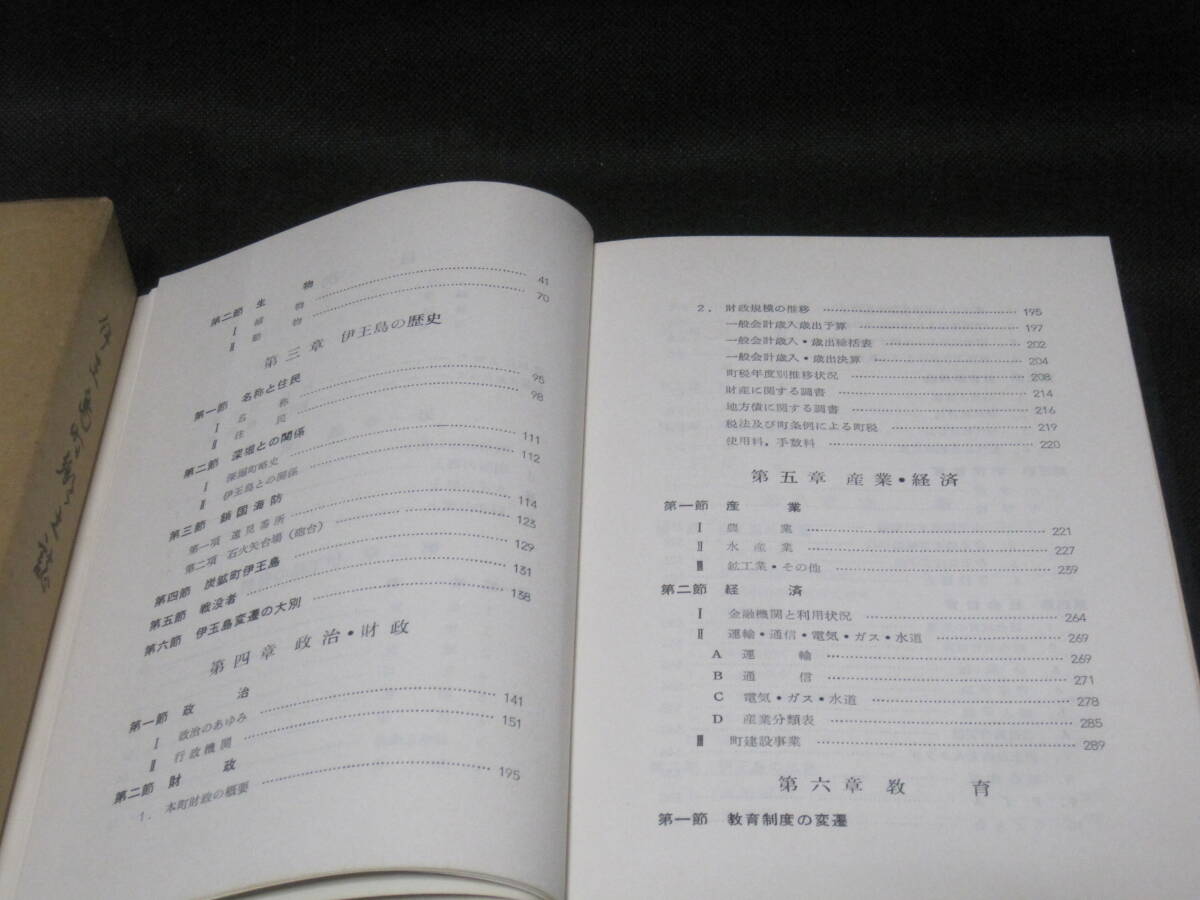 第二節 生物
Ⅰ 植物 41
Ⅱ 動物 70
第三章 伊王島の歴史
第一節 名称と住民
Ⅰ 名称 95
Ⅱ 住民 98
第二節 深堀との関係
Ⅰ 深堀町略史 111
Ⅱ 伊王島との関係 112
第三節 鎖国海防
第一項 遠見番所 114
第二項 石火矢台場(砲台) 123
第四節 炭鉱町伊王島 129
第五節 戦没者 131
第六節 伊王島変遷の大別 138
第四章 政治・財政
第一節 政治
Ⅰ 政治のあゆみ 141
Ⅱ 行政機関 151
第二節 財政
1. 本町財政の概要 195
2. 財政規模の推移 195
一般会計歳入歳出予算 197
一般会計歳入・歳出総括表 202
一般会計歳入・歳出決算 204
町税年度別推移状況 208
財産に関する調書 214
地方債に関する調書 216
税法及び町条例による町税 219
使用料,手数料 220
第五章 産業・経済
第一節 産業
Ⅰ 農業 221
Ⅱ 水産業 227
Ⅲ 鉱工業・その他 239
第二節 経済
Ⅰ 金融機関と利用状況 264
Ⅱ 運輸・通信・電気・ガス・水道 269
A 運輸 269
B 通信 271
C 電気・ガス・水道 278
D 産業分類表 285
Ⅲ 町建設事業 289
第六章 教育
第一節 教育制度の変遷